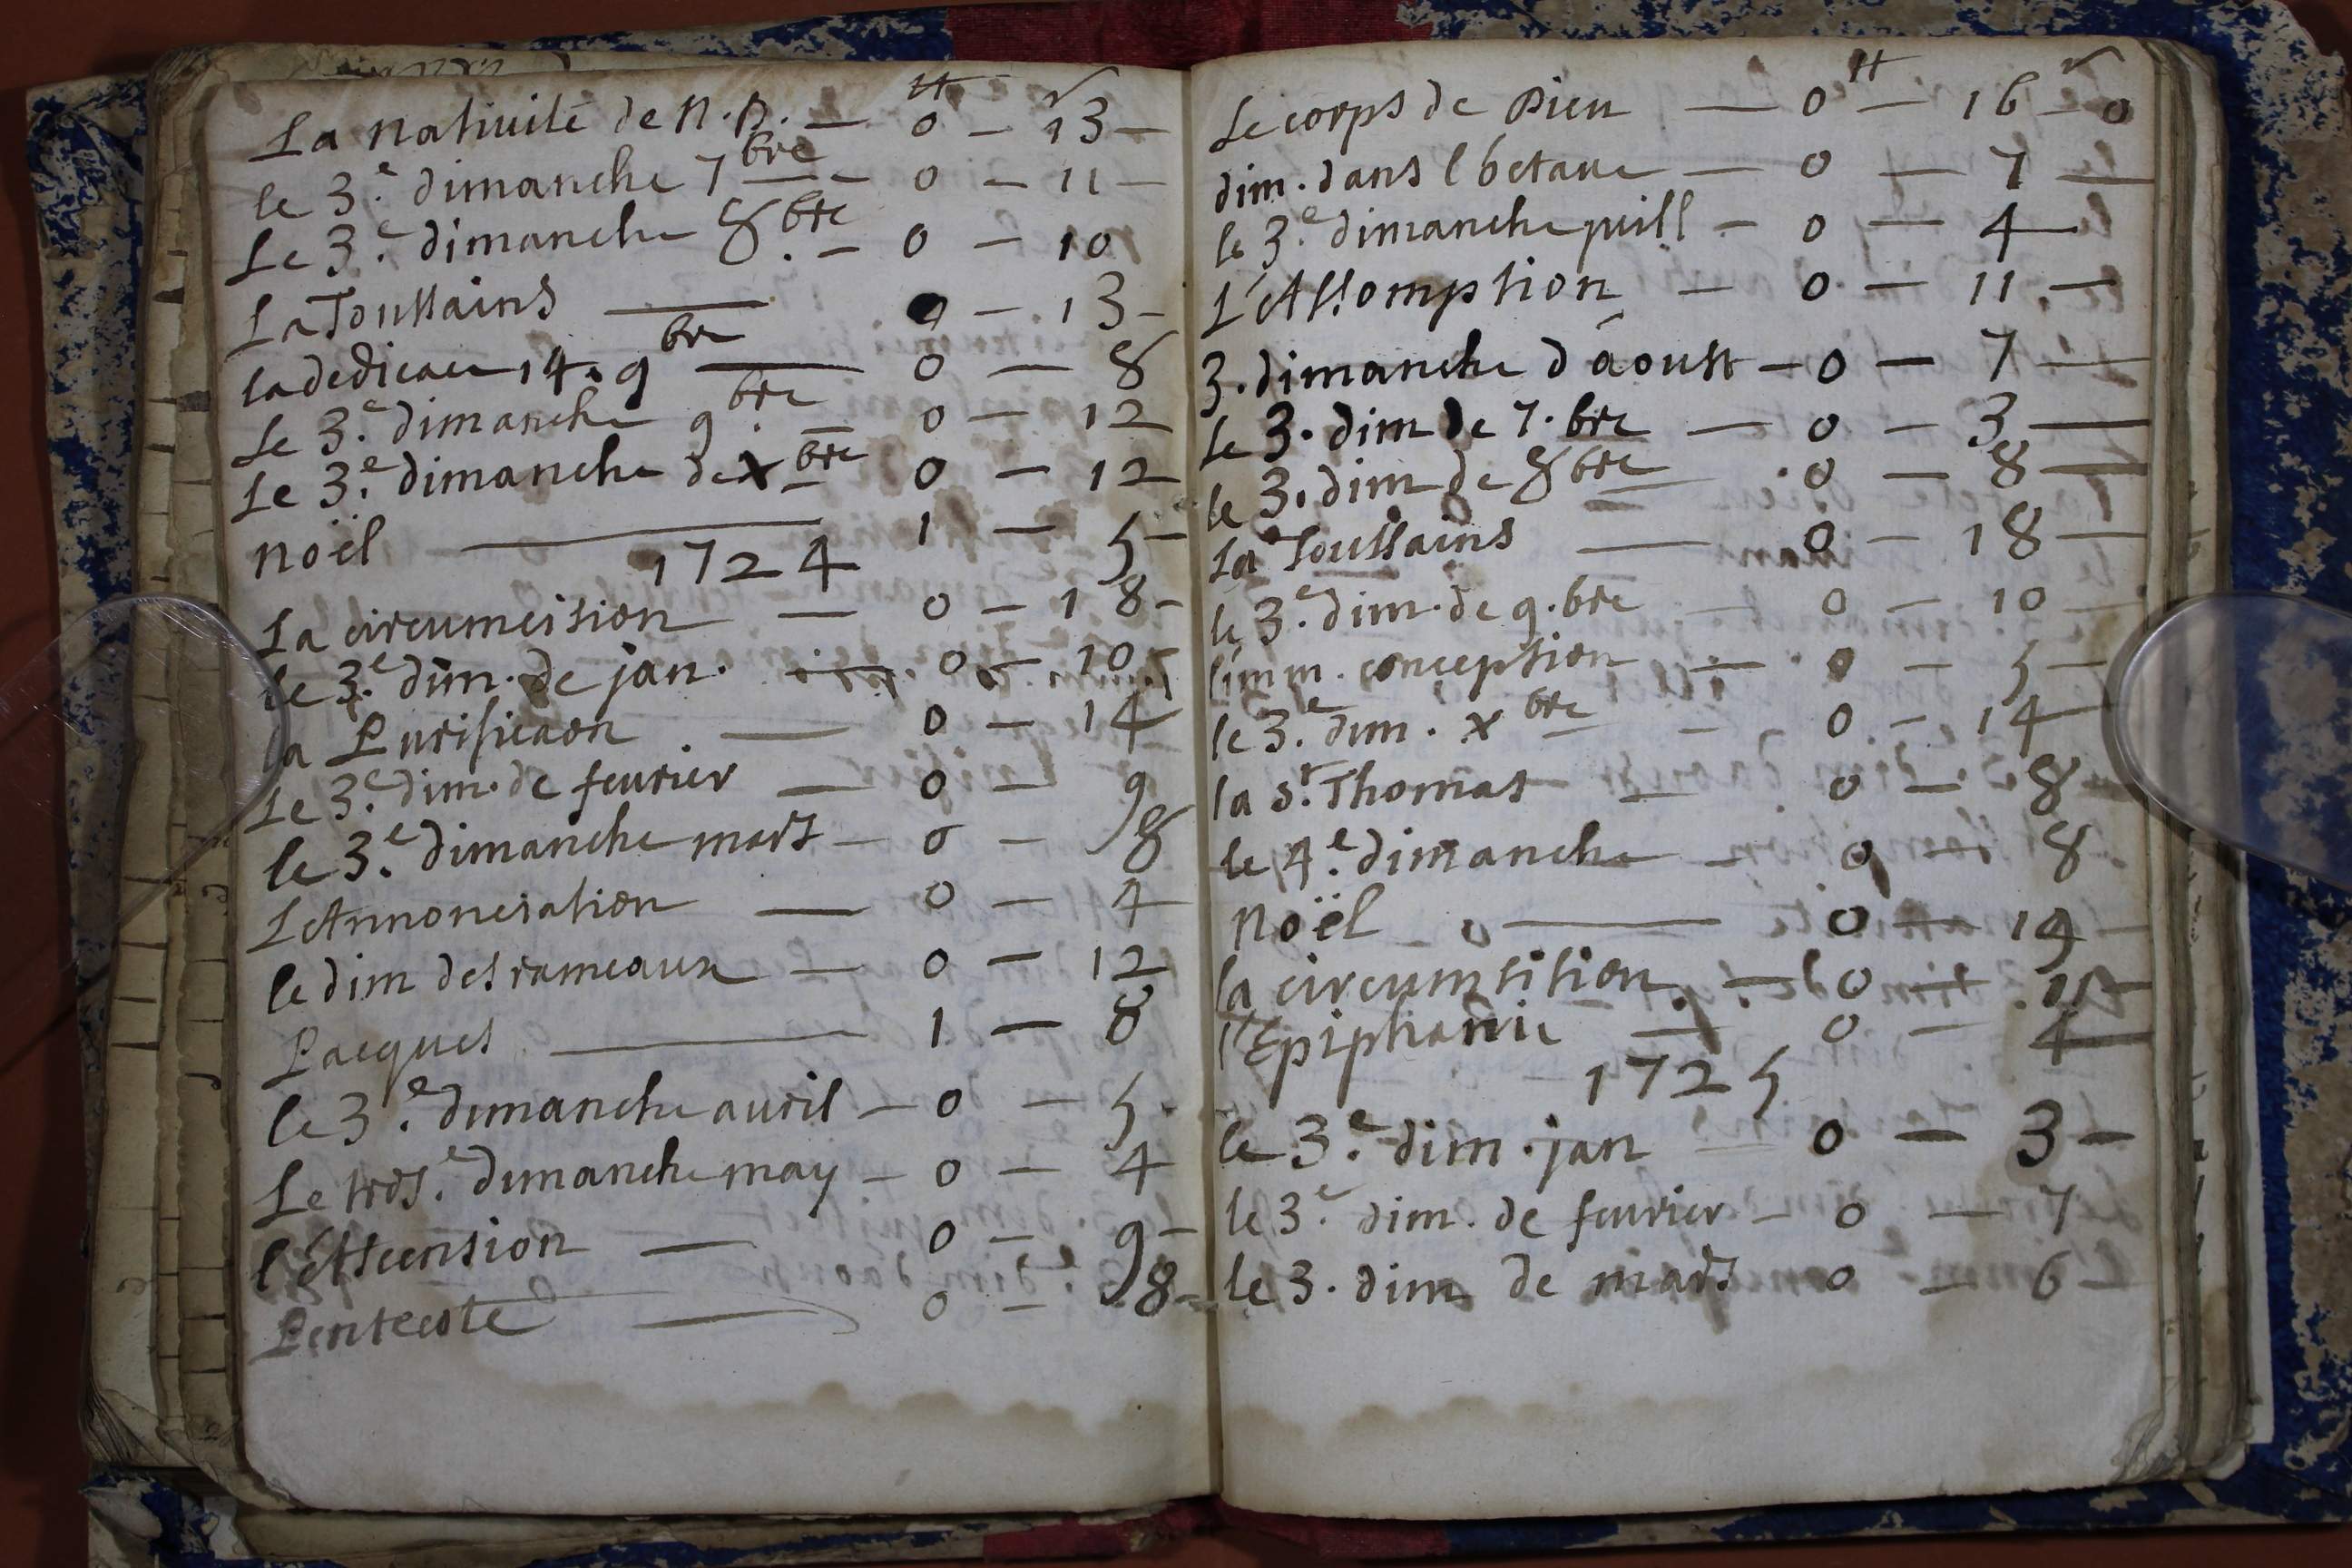 La nativité de N. D. — 0 — 13 —
le 3.e dimanche 7bre — 0 — 11 —
Le 3.e dimanche 8bre. — 0 — 10
La Toussains — 0 — 13 —
la dedicace 14. 9bre — 0 — 8
Le 3.e dimanche 9bre — 0 — 12
Le 3.e dimanche de Xbre 0 — 12
noël — 1 — 5 —
1724
La circumcision — 0 — 18 —
le 3.e dim. de jan. 0 — 10 —
la Purificaon — 0 — 14
Le 3.e dim. de feurier — 0 — 9
le 3.e dimanche mars — 0 — 8
L'Annonciation — 0 — 4
le dim des rameaux — 0 — 12
Pacques — 1 — 8
le 3.e dimanche auril — 0 — 5.
Le trois.e dimanche may — 0 — 4
l'Assension — 0 — 9 —
Pentecoste — 0 — 8 —
Le corps de Dieu — 0 — 16 — 0
dim. dans l'octaue — 0 — 7 —
le 3.e dimanche juill — 0 — 4
L'Assomption — 0 — 11 —
3. dimanche d'aoust — 0 — 7 —
le 3. dim de 7.bre — 0 — 3 —
le 3. dim de 8bre 0 — 8 —
La Toussains — 0 — 18 —
le 3.e dim. de 9.bre — 0 — 10
l'imm. conception — 0 — 5 —
le 3.e dim. xbre — 0 — 14
la St. Thomas — 0 — 8
le 4.e dimanche — 0 — 8
Noël — 0 — 19
la circumsision — 0 — 15 —
l'Epiphanie — 0 — 4
1725
le 3.e dim. jan — 0 — 3 —
le 3.e dim. de feurier — 0 — 7
le 3. dim de mars 0 — 6 —